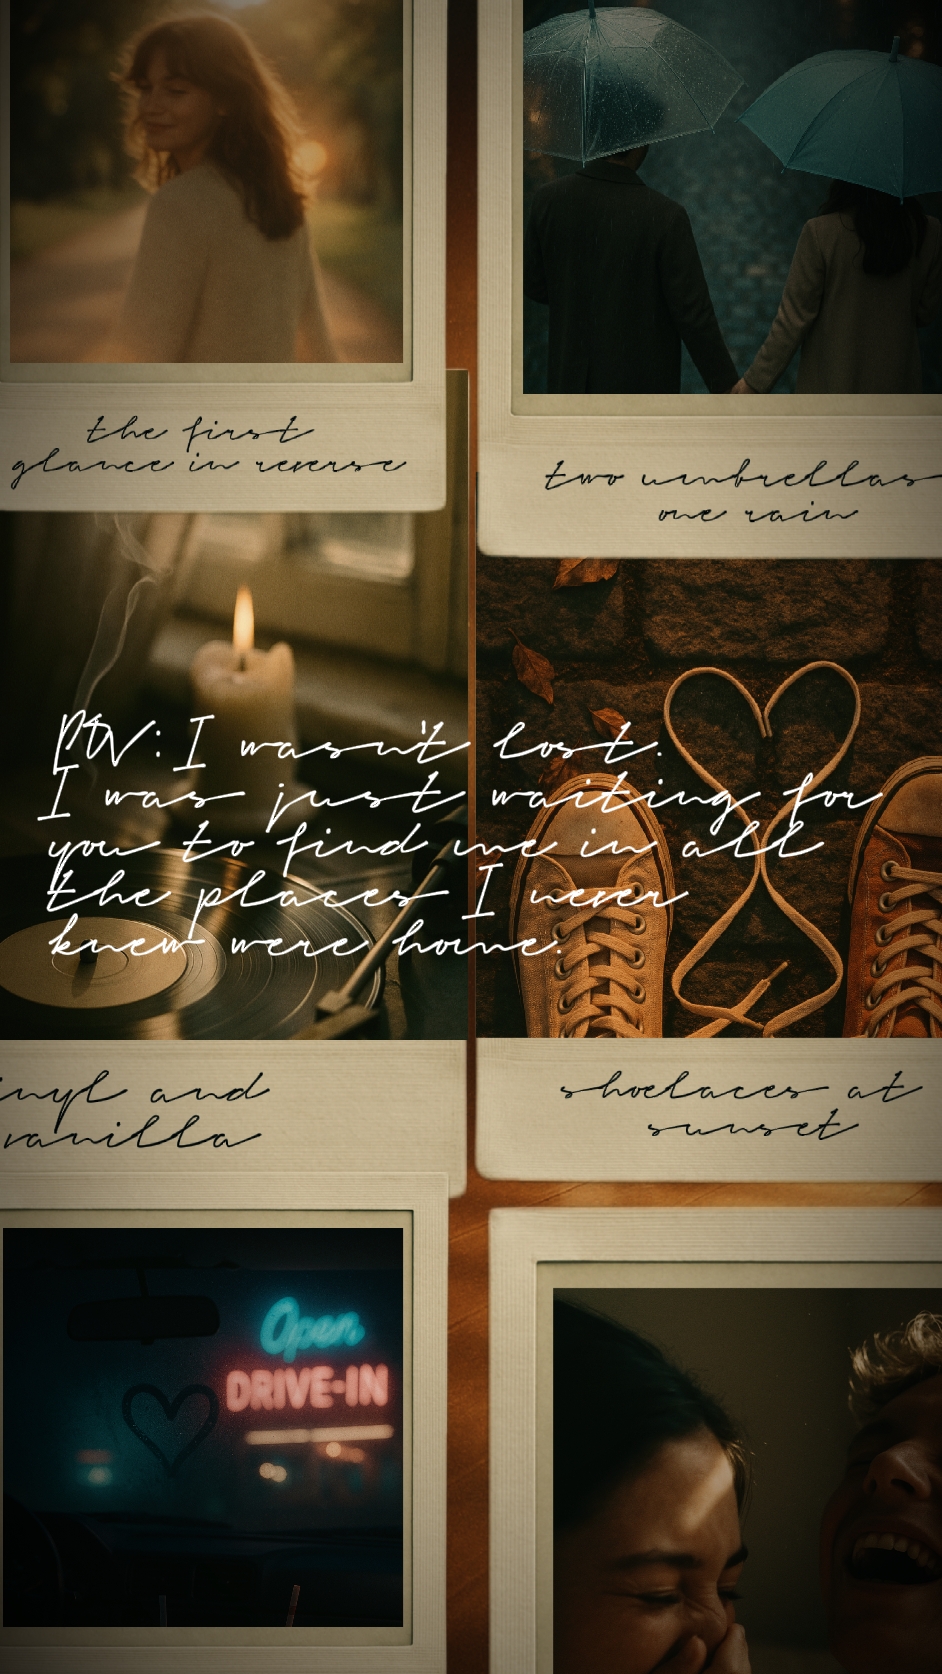 the first
glance in reverse
two umbrellas
one rain
POV: I wasn't lost.
I was just waiting for
you to find me in all
the places I never
knew were home.
inyl and
vanilla
shoelaces at
sunset
Open
DRIVE-IN